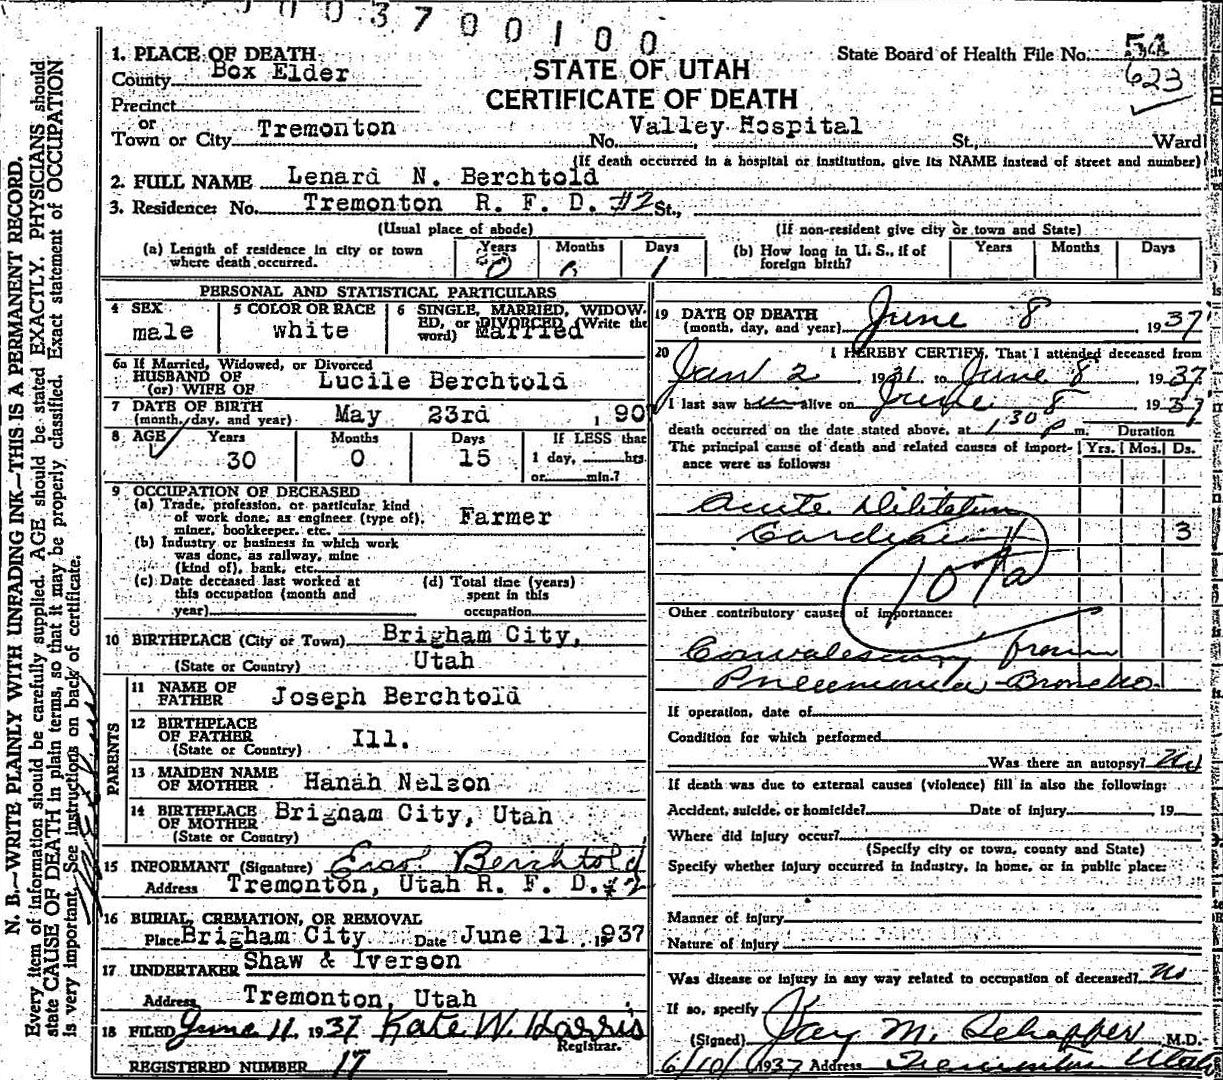 003700100
1. PLACE OF DEATH
County Box Elder
Precinct
or
Town or City Tremonton
STATE OF UTAH
CERTIFICATE OF DEATH
State Board of Health File No. 52
623
No. Valley Hospital St., Ward
(If death occurred in a hospital or institution, give its NAME instead of street and number)
2. FULL NAME Lenard N. Berchtold
3. Residence: No. Tremonton R. F. D. #2 St.,
(Usual place of abode) (If non-resident give city or town and State)
(a) Length of residence in city or town where death occurred. Years 0 Months 0 Days 1
(b) How long in U. S., if of foreign birth? Years Months Days
PERSONAL AND STATISTICAL PARTICULARS
4 SEX male
5 COLOR OR RACE white
6 SINGLE, MARRIED, WIDOWED, or DIVORCED (Write the word) Married
6a If Married, Widowed, or Divorced
HUSBAND OF
(or) WIFE OF Lucile Berchtold
7 DATE OF BIRTH
(month, day, and year) May 23rd , 190
8 AGE Years 30 Months 0 Days 15 If LESS than 1 day, hrs. or min.?
9 OCCUPATION OF DECEASED
(a) Trade, profession, or particular kind of work done, as engineer (type of), miner, bookkeeper, etc. Farmer
(b) Industry or business in which work was done, as railway, mine (kind of), bank, etc.
(c) Date deceased last worked at this occupation (month and year)
(d) Total time (years) spent in this occupation
10 BIRTHPLACE (City or Town) Brigham City,
(State or Country) Utah
PARENTS
11 NAME OF FATHER Joseph Berchtold
12 BIRTHPLACE OF FATHER
(State or Country) Ill.
13 MAIDEN NAME OF MOTHER Hanah Nelson
14 BIRTHPLACE OF MOTHER Brigham City, Utah
(State or Country)
15 INFORMANT (Signature) Berchtold
Address Tremonton, Utah R. F. D. #2
16 BURIAL, CREMATION, OR REMOVAL
Place Brigham City Date June 11, 1937
17 UNDERTAKER Shaw & Iverson
Address Tremonton, Utah
18 FILED June 11, 1937 Kate W. Harris
Registrar.
REGISTERED NUMBER 17
19 DATE OF DEATH
(month, day, and year) June 8, 1937
20 I HEREBY CERTIFY, That I attended deceased from
Jan 2, 1931 to June 8, 1937
I last saw him alive on June 8, 1937
death occurred on the date stated above, at 1:30 P m. Duration
The principal cause of death and related causes of importance were as follows: Yrs. Mos. Ds.
Acute Dilitation
Cardiac 3
107a
Other contributory causes of importance:
Convalescing from
Pneumonia-Broncho.
If operation, date of
Condition for which performed
Was there an autopsy? No
If death was due to external causes (violence) fill in also the following:
Accident, suicide, or homicide? Date of injury , 19
Where did injury occur?
(Specify city or town, county and State)
Specify whether injury occurred in industry, in home, or in public place:
Manner of injury
Nature of injury
Was disease or injury in any way related to occupation of deceased? No
If so, specify
(Signed) Jay M. Schaffer M.D.
6/10/1937 Address Tremonton Utah
N. B.—WRITE PLAINLY WITH UNFADING INK—THIS IS A PERMANENT RECORD.
Every item of information should be carefully supplied. AGE should be stated EXACTLY. PHYSICIANS should
state CAUSE OF DEATH in plain terms, so that it may be properly classified. Exact statement of OCCUPATION
is very important. See instructions on back of certificate.